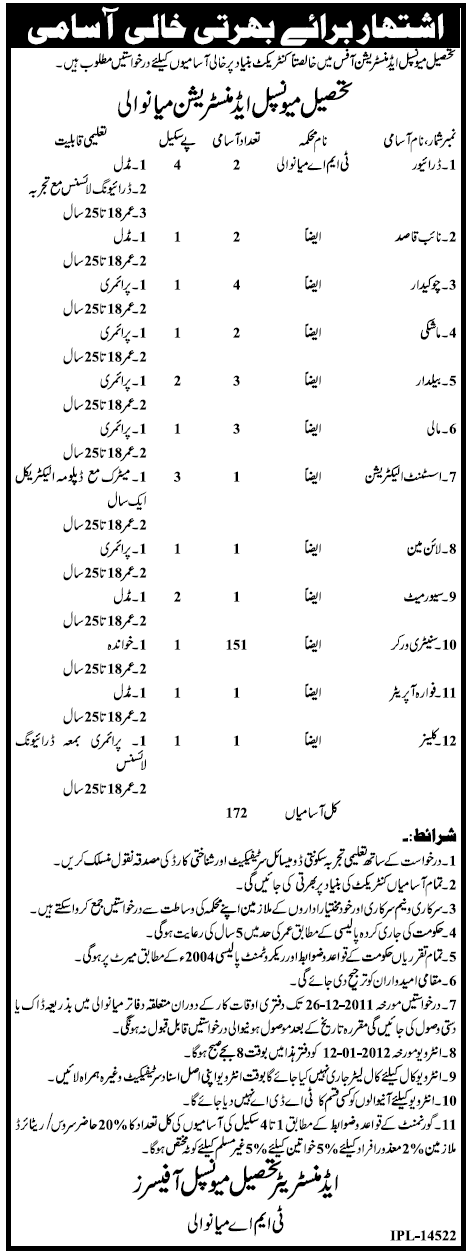 اشتہار برائے بھرتی خالی آسامی
تحصیل میونسپل ایڈمنسٹریشن آفس میں خالصتاً کنٹریکٹ بنیاد پر خالی آسامیوں کیلئے درخواستیں مطلوب ہیں۔
تحصیل میونسپل ایڈمنسٹریشن میانوالی
نمبر شمار، نام آسامی نام محکمہ تعداد آسامی پے سکیل تعلیمی قابلیت
1۔ڈرائیور ٹی ایم اے میانوالی 2 4 1۔مڈل
2۔ڈرائیونگ لائسنس مع تجربہ
3۔عمر 18 تا 25 سال
2۔نائب قاصد ایضاً 2 1 1۔مڈل
2۔عمر 18 تا 25 سال
3۔چوکیدار ایضاً 4 1 1۔پرائمری
2۔عمر 18 تا 25 سال
4۔ماشکی ایضاً 2 1 1۔پرائمری
2۔عمر 18 تا 25 سال
5۔بیلدار ایضاً 3 2 1۔پرائمری
2۔عمر 18 تا 25 سال
6۔مالی ایضاً 3 1 1۔پرائمری
2۔عمر 18 تا 25 سال
7۔اسسٹنٹ الیکٹریشن ایضاً 1 3 1۔میٹرک مع ڈپلومہ الیکٹریکل
ایک سال
2۔عمر 18 تا 25 سال
8۔لائن مین ایضاً 1 1 1۔پرائمری
2۔عمر 18 تا 25 سال
9۔سیورمیٹ ایضاً 1 2 1۔مڈل
2۔عمر 18 تا 25 سال
10۔سینٹری ورکر ایضاً 151 1 1۔خواندہ
2۔عمر 18 تا 25 سال
11۔فوارہ آپریٹر ایضاً 1 1 1۔مڈل
2۔عمر 18 تا 25 سال
12۔کلینر ایضاً 1 1 1۔ پرائمری بمعہ ڈرائیونگ
لائسنس
2۔عمر 18 تا 25 سال
کل آسامیاں 172
شرائط:۔
1۔درخواست کے ساتھ تعلیمی تجربہ سکونتی ڈومیسائل سرٹیفکیٹ اور شناختی کارڈ کی مصدقہ نقول منسلک کریں۔
2۔تمام آسامیاں کنٹریکٹ کی بنیاد پر بھرتی کی جائیں گی۔
3۔سرکاری و نیم سرکاری اور خود مختیار اداروں کے ملازمین اپنے محکمہ کی وساطت سے درخواستیں جمع کروا سکتے ہیں۔
4۔حکومت کی جاری کردہ پالیسی کے مطابق عمر کی حد میں 5 سال کی رعایت ہو گی۔
5۔تمام تقرریاں حکومت کے قواعد و ضوابط اور ریکروٹمنٹ پالیسی 2004ء کے مطابق میرٹ پر ہو گی۔
6۔مقامی امیدواران کو ترجیح دی جائے گی۔
7۔درخواستیں مورخہ 26-12-2011 تک دفتری اوقات کار کے دوران متعلقہ دفاتر میانوالی میں بذریعہ ڈاک یا
دستی وصول کی جائیں گی مقررہ تاریخ کے بعد موصول ہونیوالی درخواستیں قابل قبول نہ ہونگی۔
8۔انٹرویو مورخہ 12-01-2012 کو دفتر ہذا میں بوقت 8 بجے صبح ہو گا۔
9۔انٹرویو کال کیلئے کال لیٹر جاری نہیں کیا جائے گا بوقت انٹرویو اپنی اصل اسناد سرٹیفکیٹ وغیرہ ہمراہ لائیں۔
10۔انٹرویو کیلئے آنیوالوں کو کسی قسم کا ٹی اے ڈی اے نہیں دیا جائے گا۔
11۔گورنمنٹ کے قواعد و ضوابط کے مطابق 1 تا 4 سکیل کی آسامیوں کی کل تعداد کا 20% حاضر سروس/ریٹائرڈ
ملازمین 2% معذور افراد کیلئے 5% خواتین کیلئے 5% غیر مسلم کیلئے کوٹہ مختص ہو گا۔
ایڈمنسٹریٹر تحصیل میونسپل آفیسرز
ٹی ایم اے میانوالی
IPL-14522